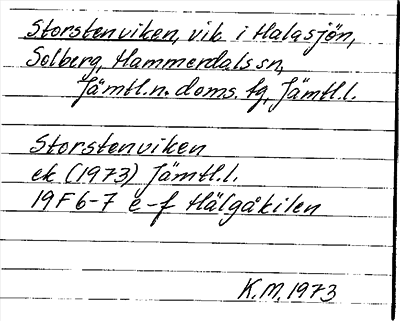 Storstenviken, vik i Halasjön,
Solberg, Hammerdals sn,
Jämtl.n. doms. tg, Jämtl.l.
Storstenviken
ek (1973) Jämtl.l.
19F6-7 e-f Hälgåkilen
K.M. 1973